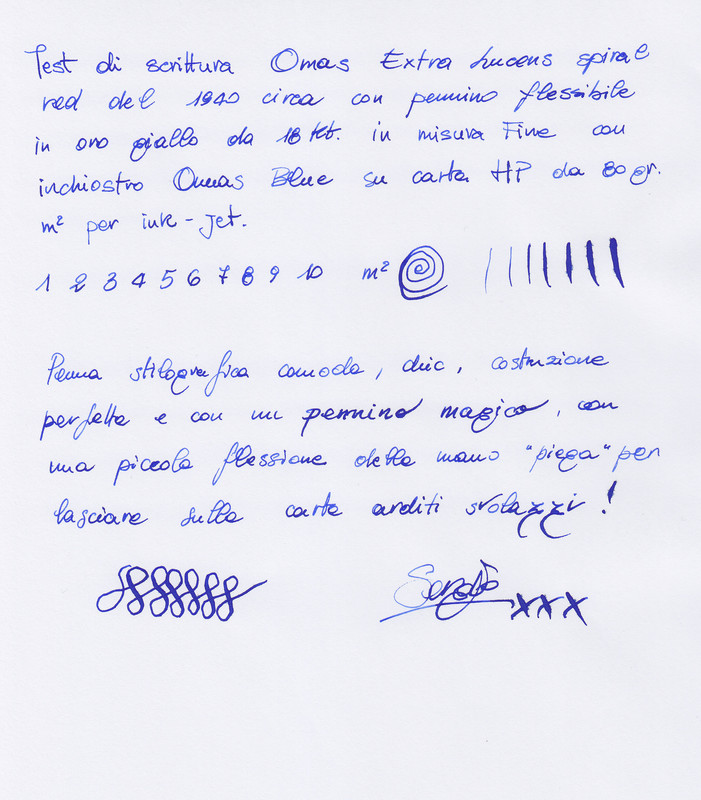 Test di scrittura Omas Extra Lucens spiral
red del 1940 circa con pennino flessibile
in oro giallo da 18 kt. in misura Fine con
inchiostro Omas Blue su carta HP da 80 gr.
m² per ink-jet.
1 2 3 4 5 6 7 8 9 10 m²
Penna stilografica comoda, chic, costruzione
perfetta e con un pennino magico, con
una piccola flessione della mano "piega" per
lasciare sulla carta arditi svolazzi!
xxx